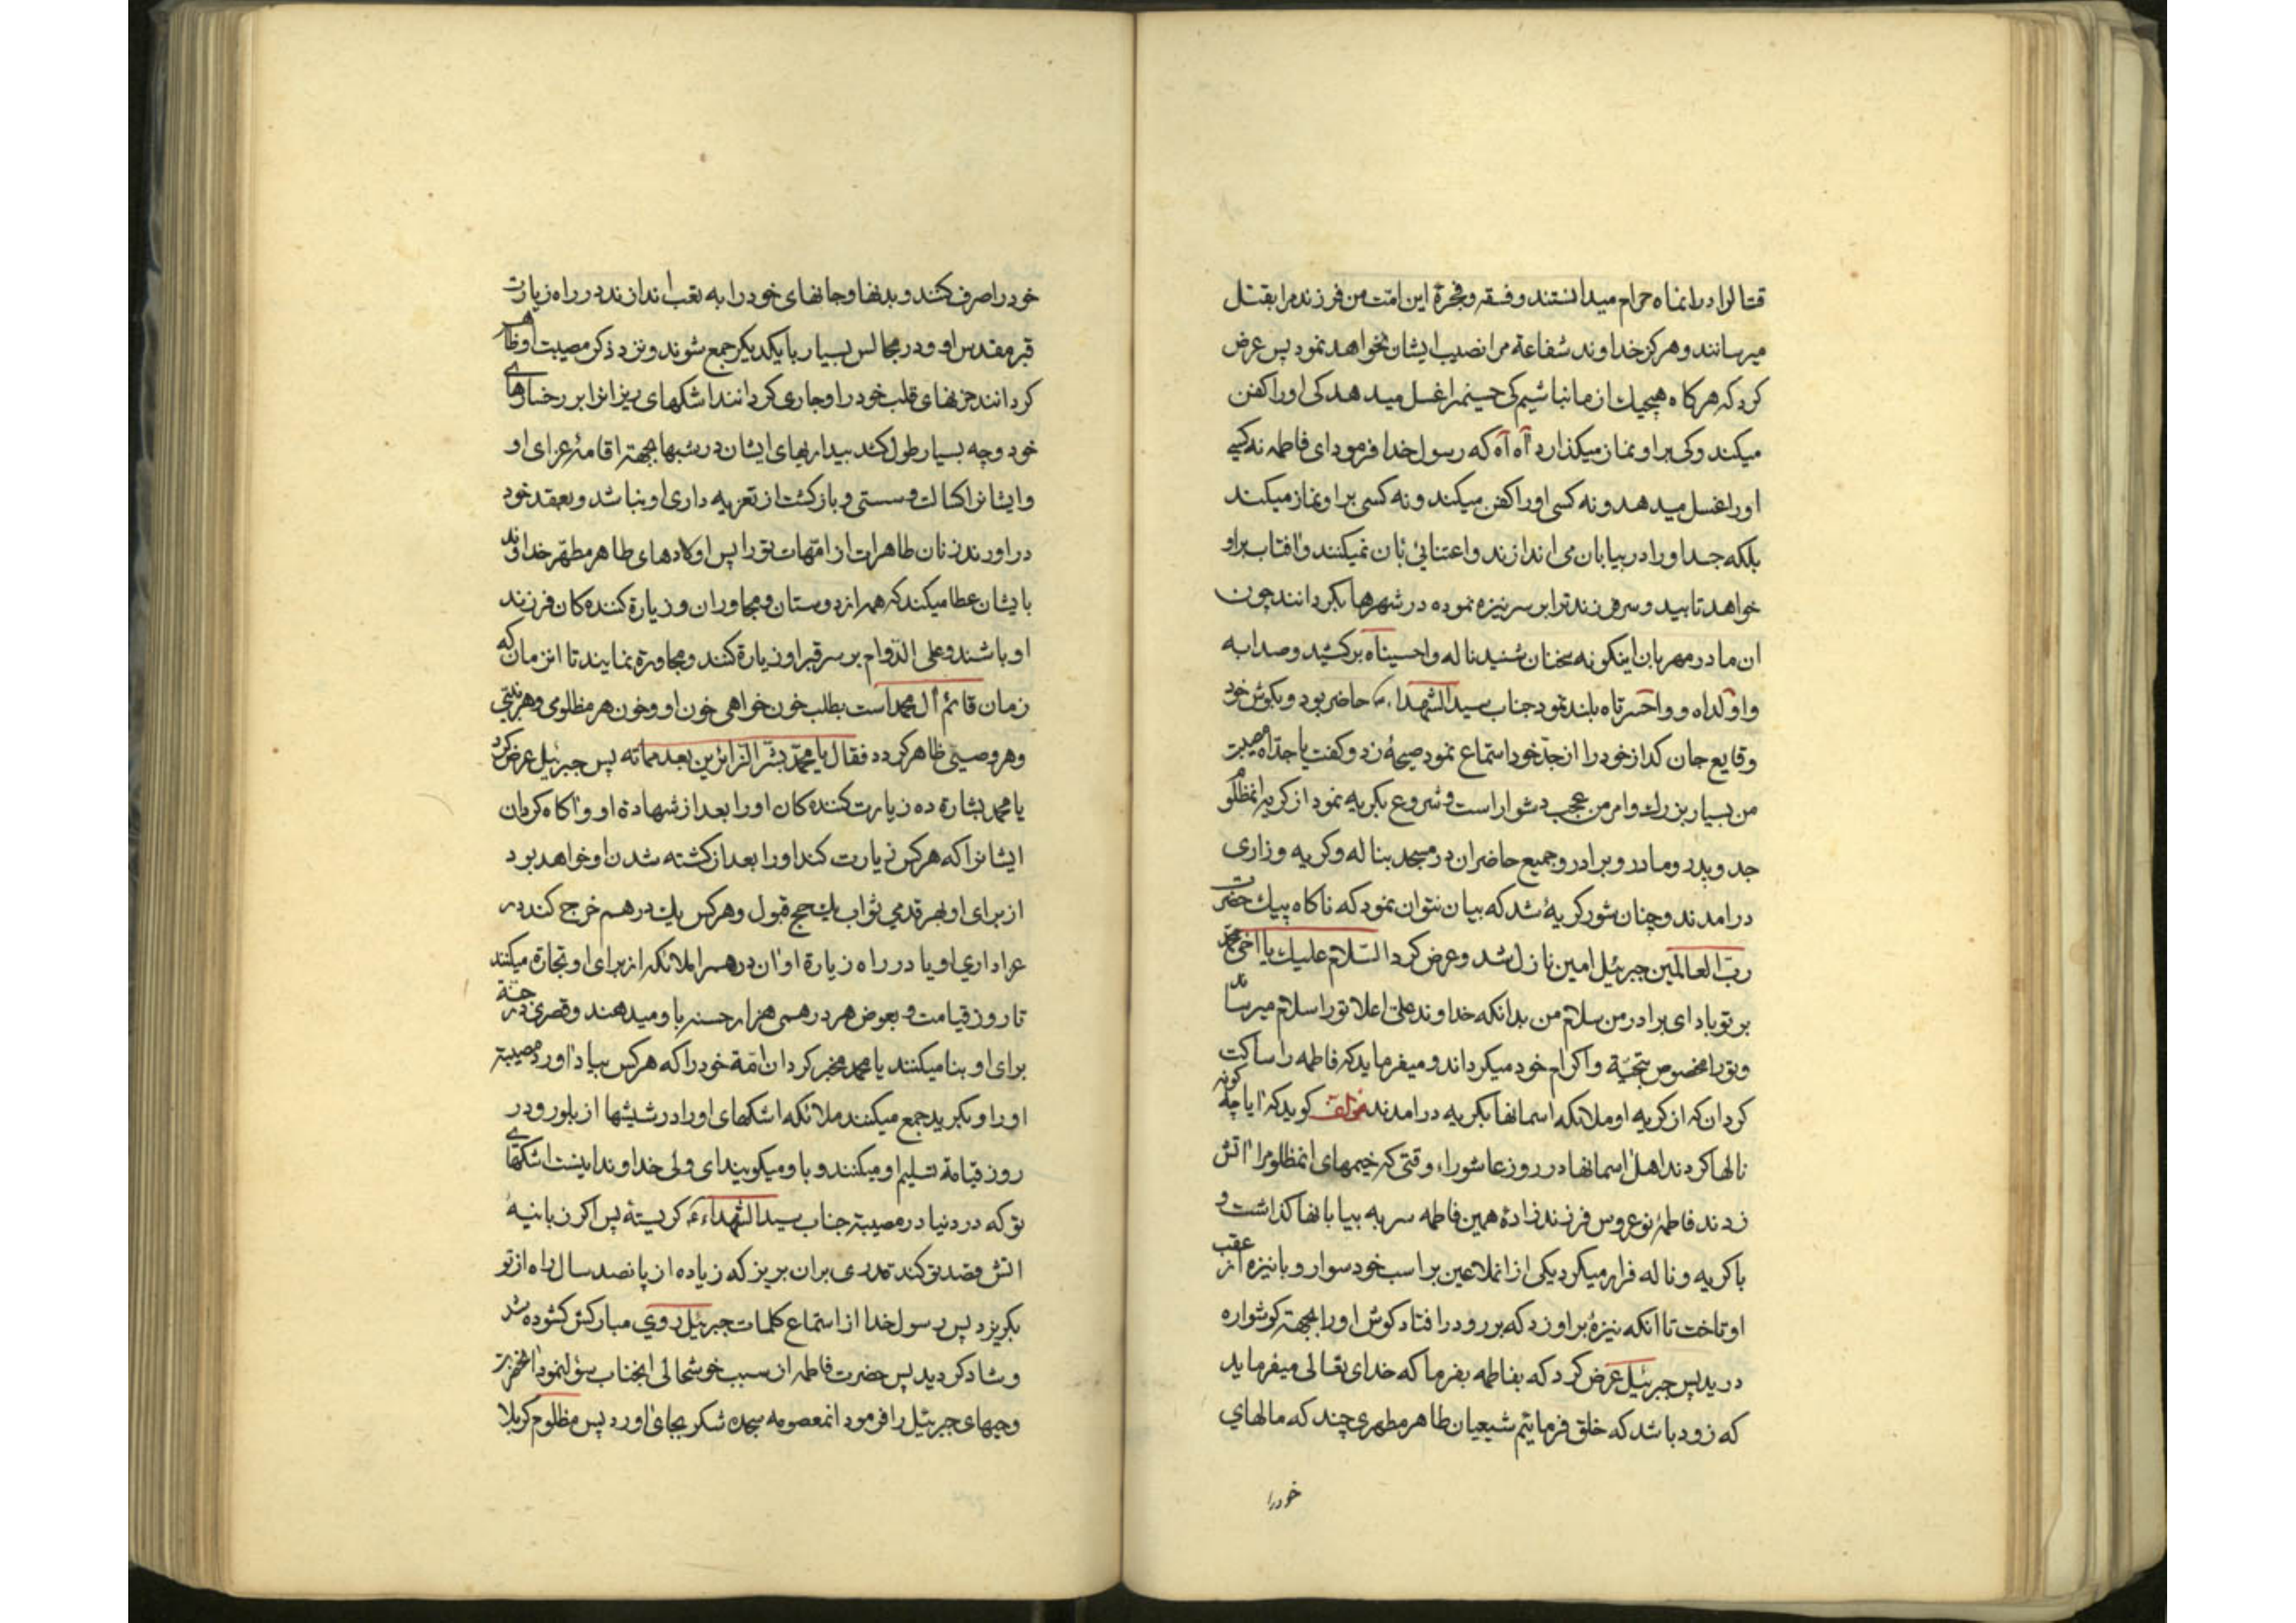 قتال را در انماه حرام میدانستند و فسقه و فجرهٔ این امّت من فرزند مرا بقتل
میرسانند و هرکز خداوند شفاعة مرا نصیب ایشان نخواهد نمود پس عرض
کرد که هرکاه هیچیك از ما نباشیم کی حسینمرا غسل میدهد کی اورا کفن
میکند و کی بر او نماز میکذارد آه آه که رسول خدا فرمود ای فاطمه نه کسی
اورا غسل میدهد و نه کسی اورا کفن میکند و نه کسی بر او نماز میکند
بلکه جسد اورا در بیابان می اندازند و اعتنائی بان نمیکنند و افتاب بر او
خواهد تابید و سر فرزند ترا بر سر نیزه نموده در شهرها بکردانند چون
ان مادر مهربان اینکونه سخنان شنید ناله واحسیناه برکشید و صدا به
واولداه و واحسرتاه بلند نمود جناب سید الشهداء حاضر بود و بکوش خود
وقایع جان کداز خود را از جدّ خود استماع نمود صیحهٔ زد و کفت یا جدّاه مصیبت
من بسیار بزرك و امر من عجب دشوار است و شروع بکریه نمود از کریه انمظلوم
جد و پدر و مادر و برادر و جمیع حاضران در مسجد بناله و کریه و زاری
درامدند و چنان شور کریهٔ شد که بیان نتوان نمود که ناکاه پیك حضرت
ربّ العالمین جبرئیل امین نازل شد و عرض کرد السّلام علیك یا اخی محمّد
بر تو باد ای برادر من سلام من بدانکه خداوند علیّ اعلا تورا سلام میرساند
و تورا مخصوص بتحیّة و اکرام خود میکرداند و میفرماید که فاطمه را ساکت
کردان که از کریه او ملائکه اسمانها بکریه درامدند مؤلف کوید که ایا چه کونه
نالها کردند اهل اسمانها در روز عاشوراء وقتی که خیمهای انمظلومرا اتش
زدند فاطمهٔ نوعروس فرزندزادهٔ همین فاطمه سر به بیابانها کذاشت و
با کریه و ناله فرار میکرد یکی از انملاعین بر اسب خود سوار و با نیزه از عقب
او تاخت تا انکه نیزهٔ بر او زد که برو درافتاد کوش اورا بجهتر کوشواره
درید پس جبرئیل عرض کرد که بفاطمه بفرما که خدای تعالی میفرماید
که زود باشد که خلق فرمایم شیعیان طاهر مطهری چند که مالهای
خودرا
خود را صرف کنند و بدنها و جانهای خود را به تعب اندازند در راه زیارت
قبر مقدس او و در مجالس بسیار با یکدیکر جمع شوند و نزد ذکر مصیبت او ظاهر
کردانند حزنهای قلب خود را و جاری کردانند اشکهای ریزانرا بر رخسارهای
خود و چه بسیار طول کشد بیداریهای ایشان در شبها بجهتر اقامهٔ عزای او
و ایشانرا کسالت و سستی و بازکشت از تعزیه داری او نباشد و بعقد خود
دراورند زنان طاهرات از امّهات تورا پس اولادهای طاهر مطهّر خداوند
بایشان عطا میکند که همه از دوستان و مجاوران و زیارة کننده کان فرزند
او باشند و علی الدّوام بر سر قبر او زیارة کنند و مجاورة نمایند تا انزمان که
زمان قائم آل محمد است بطلب خون خواهی خون او و خون هر مظلومی و هر نبیّ
و هر وصیّی ظاهر کردد فقال یا محمّد بشّر الزائرین بعد مماته پس جبرئیل عرض کرد
یا محمد بشارة ده زیارت کننده کان اورا بعد از شهادة او و اکاه کردان
ایشانرا که هر کس زیارت کند اورا بعد از کشته شدن او خواهد بود
از برای او بهر قدمی ثواب یك حج قبول و هر کس یك درهم خرج کند در
عزاداری او یا در راه زیارة او ان درهم را ملائکه از برای او تجارة میکنند
تا روز قیامت و بعوض هر درهمی هزار حسنه باو میدهند و قصری در جنّة
برای او بنا میکنند یا محمد مخبر کردان امّة خود را که هر کس بیاد اورد مصیبتر
اورا و بکرید جمع میکنند ملائکه اشکهای اورا در شیشها از بلور و در
روز قیامة تسلیم او میکنند و باو میکویند ای ولی خداوند اینست اشکهای
تو که در دنیا در مصیبتر جناب سید الشهداء کریستهٔ پس اکر زبانیهٔ
اتش قصد تو کند قدری بر ان بریز که زیاده از پانصد سال راه از تو
بکریزد پس رسول خدا از استماع کلمات جبرئیل روی مبارکش کشوده شد
و شاد کردید پس حضرت فاطمه از سبب خوشحالی انجناب سؤال نمود انحضرت
وحیهای جبرئیل را فرمود انمعصومه سجده شکر بجای اورد پس مظلوم کربلا